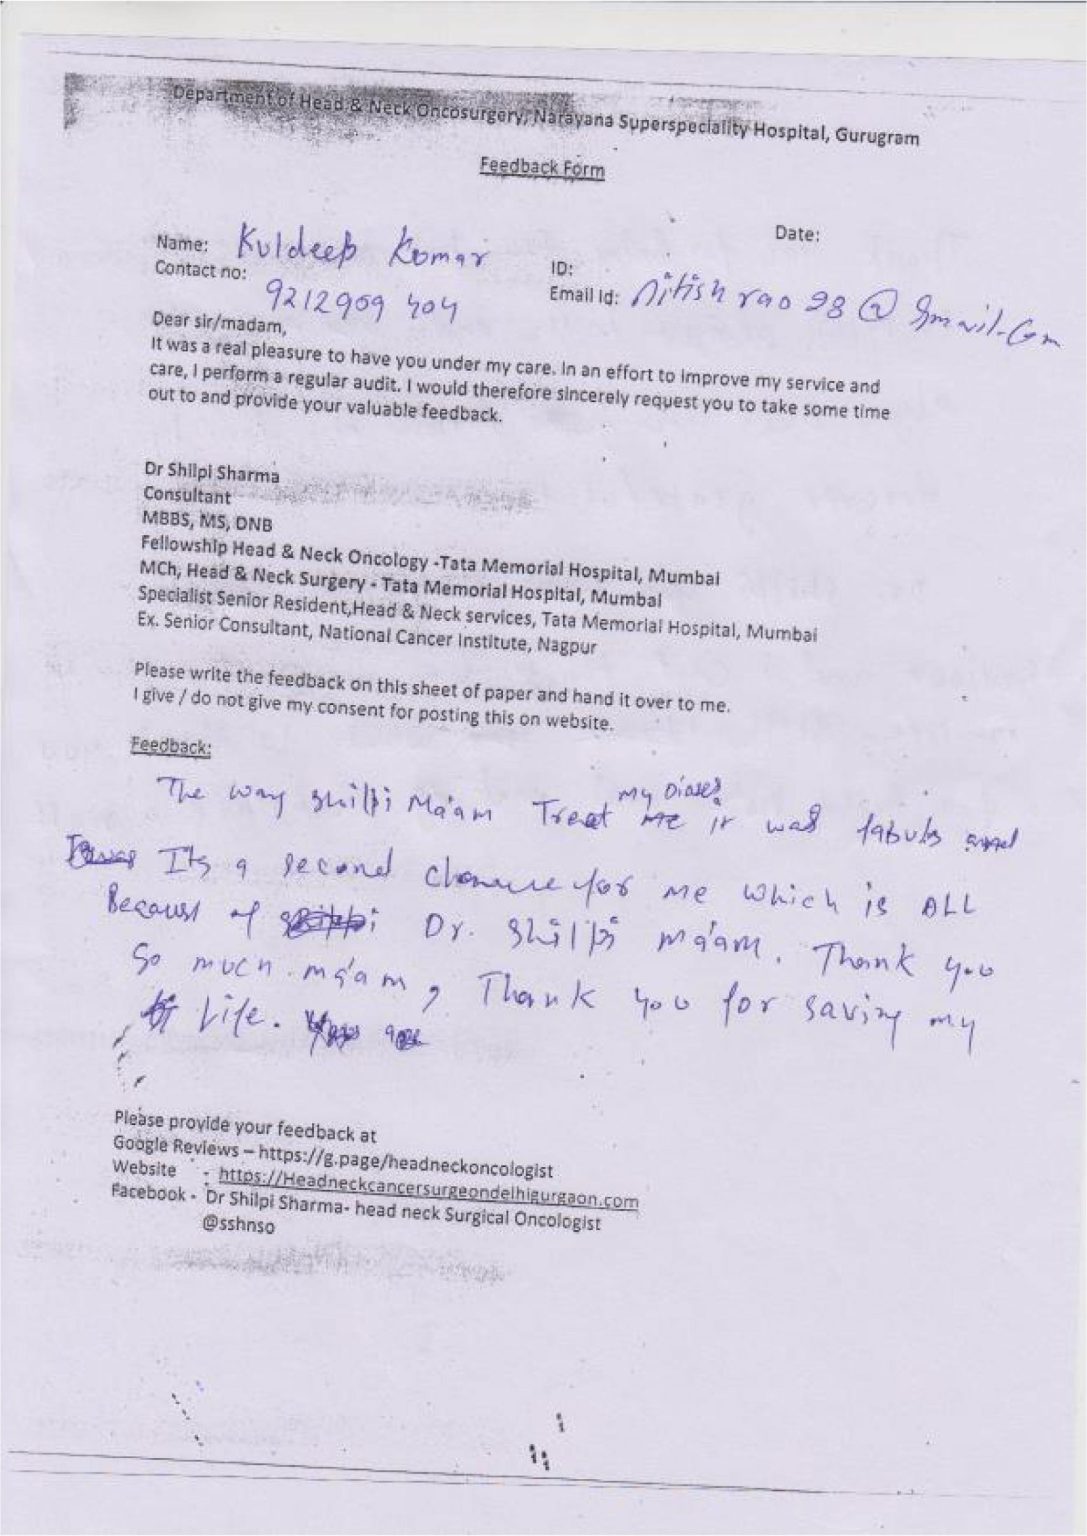 Department of Head & Neck Oncosurgery, Narayana Superspeciality Hospital, Gurugram
Feedback Form
Date:
Name: Kuldeep Kumar
ID:
Contact no: 9212909404
Email Id: nitishrao98@gmail.com
Dear sir/madam,
It was a real pleasure to have you under my care. In an effort to improve my service and
care, I perform a regular audit. I would therefore sincerely request you to take some time
out to and provide your valuable feedback.
Dr Shilpi Sharma
Consultant
MBBS, MS, DNB
Fellowship Head & Neck Oncology -Tata Memorial Hospital, Mumbai
MCh, Head & Neck Surgery - Tata Memorial Hospital, Mumbai
Specialist Senior Resident,Head & Neck services, Tata Memorial Hospital, Mumbai
Ex. Senior Consultant, National Cancer Institute, Nagpur
Please write the feedback on this sheet of paper and hand it over to me.
I give / do not give my consent for posting this on website.
Feedback:
The way Shilpi Ma'am Treat my it was fabuls and
Its a second for me which is ALL
Because of Dr. Shilpi ma'am. Thank you
So much ma'am, Thank you for saving my
Life.
Please provide your feedback at
Google Reviews – https://g.page/headneckoncologist
Website - https://Headneckcancersurgeondelhigurgaon.com
Facebook - Dr Shilpi Sharma- head neck Surgical Oncologist
@sshnso